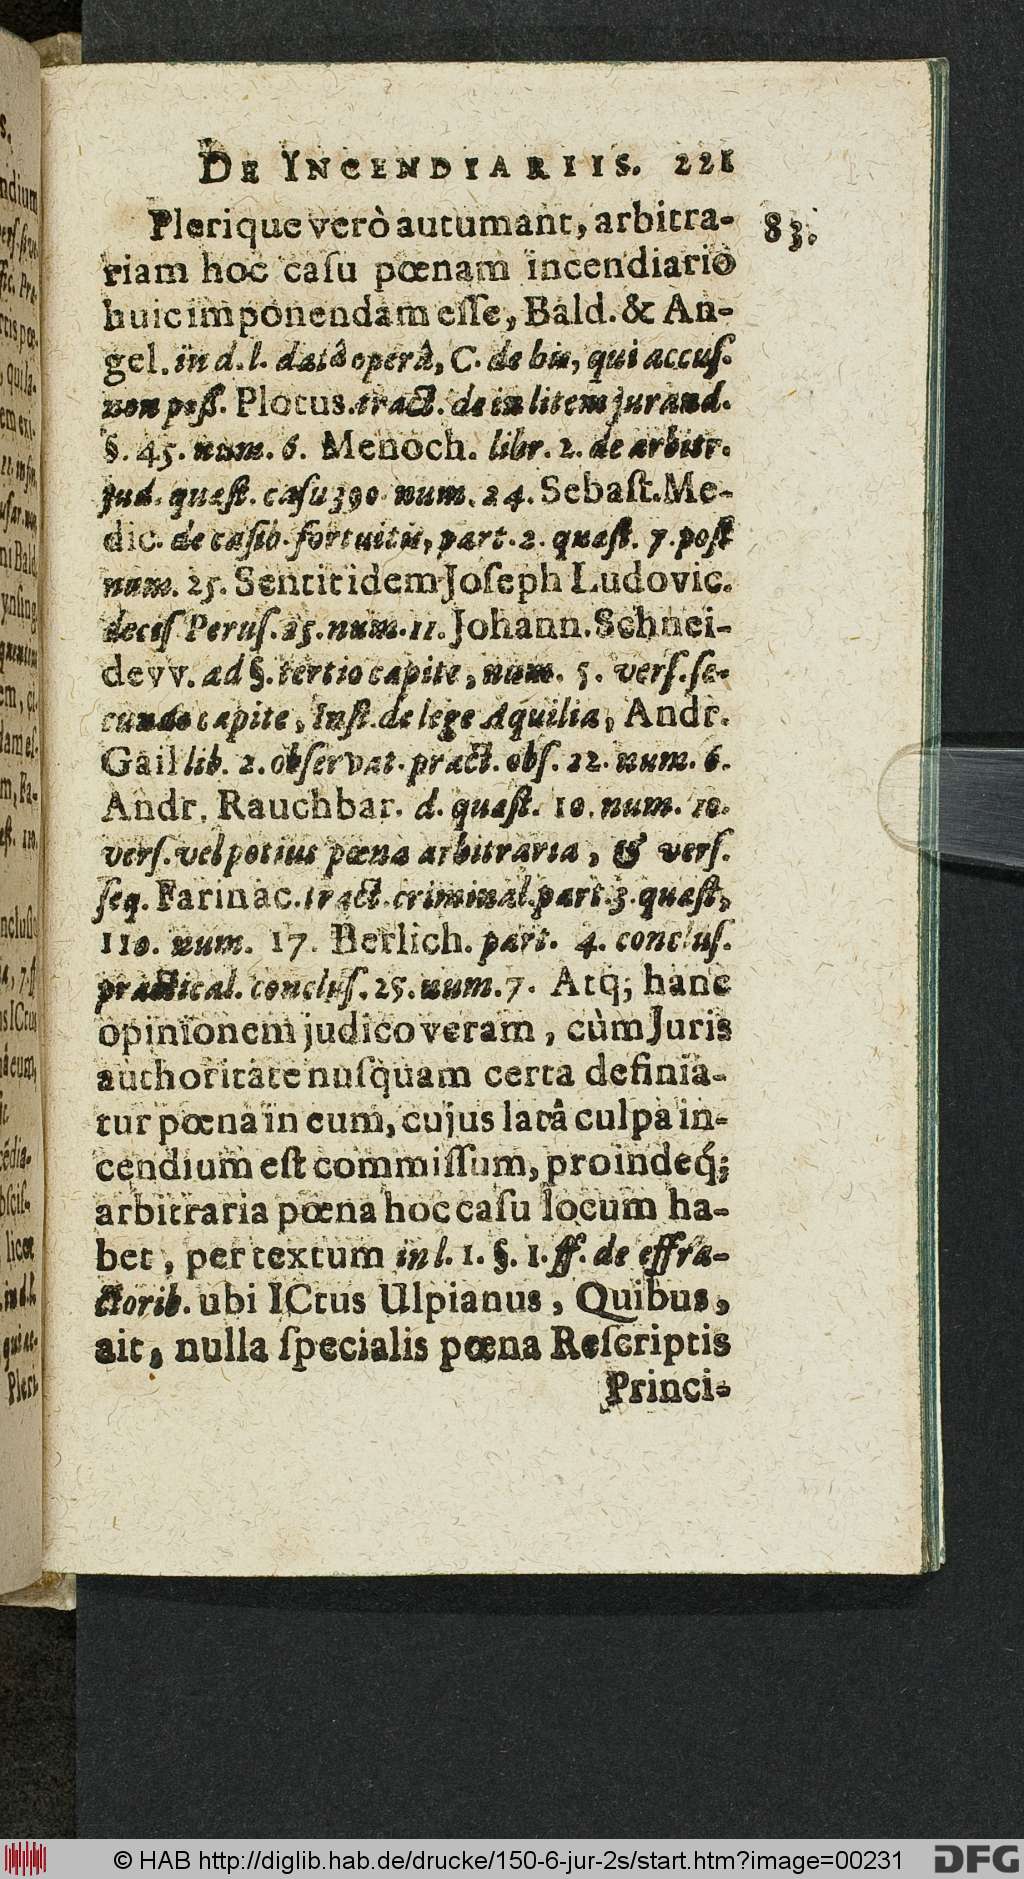 DE INCENDIARIIS. 221
Plerique verò autumant, arbitra- 83.
riam hoc casu pœnam incendiario
huic imponendam eſſe, Bald. & An-
gel. in d. l. datâ operâ, C. de his, qui accuſ.
non poſſ. Plotus. tract. de in litem jurand.
§. 45. num. 6. Menoch. libr. 2. de arbitr.
jud. quæſt. caſu 390. num. 24. Sebaſt. Me-
dic. de caſib. fortuitis, part. 2. quæſt. 7. poſt
num. 25. Sentit idem Joſeph Ludovic.
deciſ Peruſ. 25. num. 11. Johann. Schnei-
devv. ad §. tertio capite, num. 5. verſ. ſe-
cundo capite, Inſt. de lege Aquilia, Andr.
Gail lib. 2. obſervat. pract. obſ. 22. num. 6.
Andr. Rauchbar. d. quæſt. 10. num. 10.
verſ. vel potius pœna arbitraria, & verſ.
ſeq. Farinac. tract. criminal. part. 3. quæſt,
110. num. 17. Berlich. part. 4. concluſ.
practical. concluſ. 25. num. 7. Atq; hanc
opinionem judico veram, cùm Juris
authoritate nuſquam certa definia-
tur pœna in eum, cujus latâ culpa in-
cendium eſt commiſſum, proindeq́;
arbitraria pœna hoc caſu locum ha-
bet, per textum in l. 1. §. 1. ff. de effra-
ctorib. ubi ICtus Ulpianus, Quibus,
ait, nulla ſpecialis pœna Reſcriptis
Princi-
© HAB http://diglib.hab.de/drucke/150-6-jur-2s/start.htm?image=00231
DFG